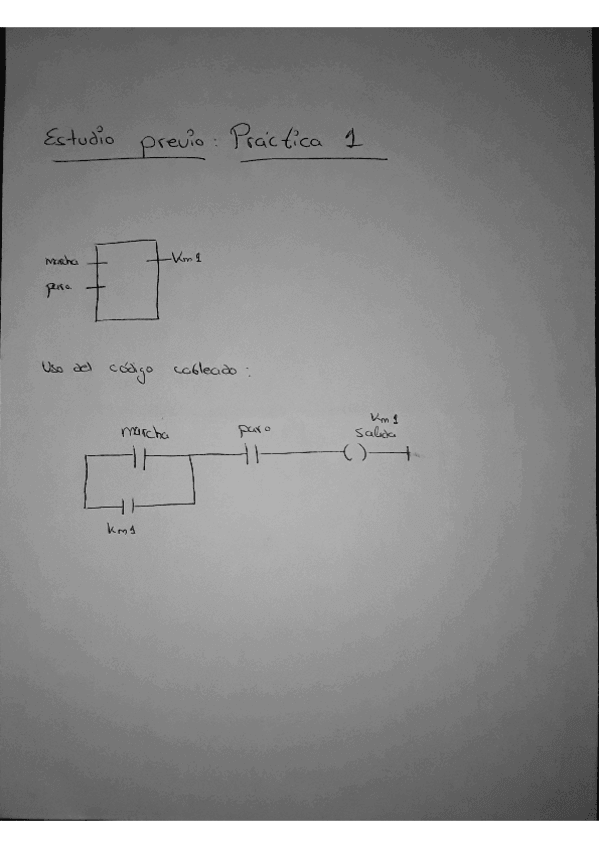 Estudio previo: Práctica 1
marcha
Km1
paro
Uso del código cableado:
Km1
marcha
paro
salida
km1